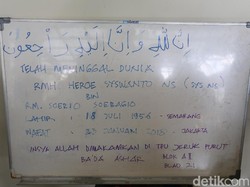 إنا لله وإنا إليه راجعون
TELAH MENINGGAL DUNIA
RMH HEROE SYSWANTO NS (SYS NS)
BIN
RM. SOERIO SOEBAGIO
LAHIR : 18 JULI 1956 - SEMARANG
WAFAT : 23 JANUARI 2018 - JAKARTA
INSYA ALLAH DIMAKAMKAN DI TPU JERUK PURUT
BA'DA ASHAR
BLOK A1
BLAD 21
detikcom